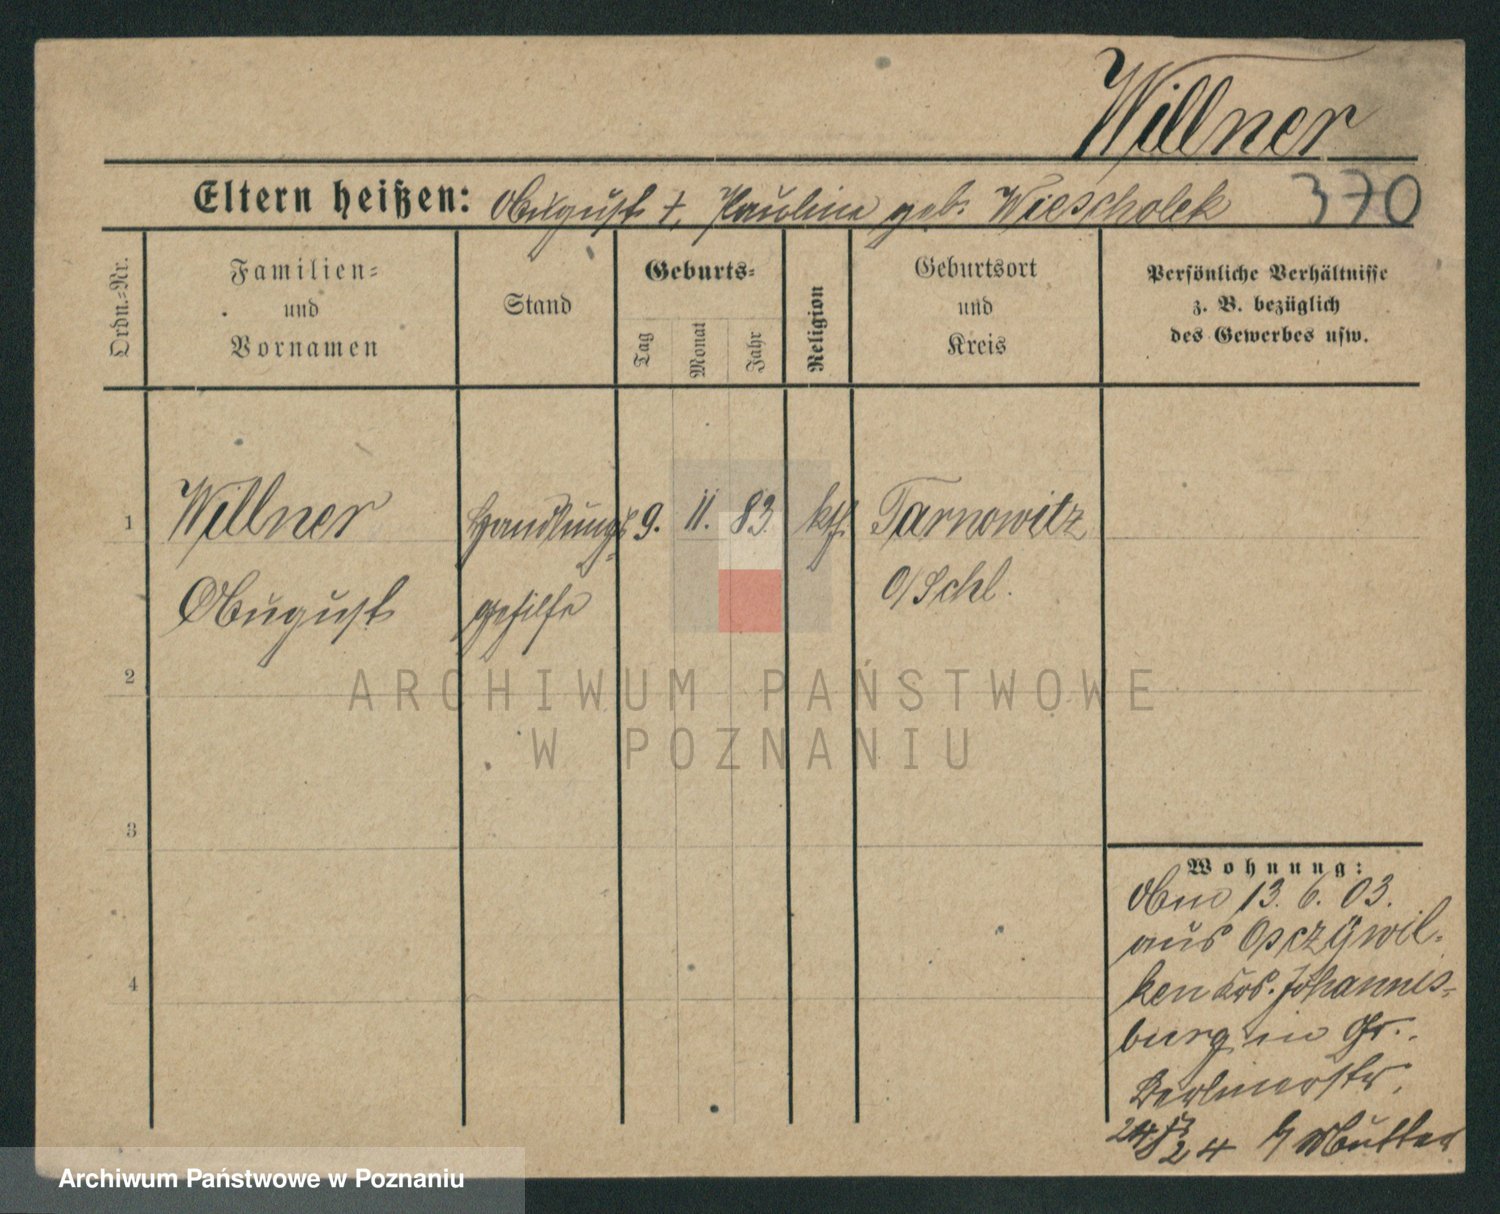 Willner
Eltern heißen: August †, Pauline geb. Wiescholek 370
Ordn.-Nr.
Familien-
und
Vornamen
Stand
Geburts-
Tag
Monat
Jahr
Religion
Geburtsort
und
Kreis
Persönliche Verhältnisse
z. B. bezüglich
des Gewerbes usw.
1 Willner Handlungs- 9. 11. 83. kth. Tarnowitz
August gehilfe O/Schl.
2
3
4
Wohnung:
Am 13. 6. 03.
aus Osczywil-
ken Krs. Johannis-
burg in Gr.
Berlinerstr.
24 b/ Mutter
ARCHIWUM PAŃSTWOWE
W POZNANIU
Archiwum Państwowe w Poznaniu